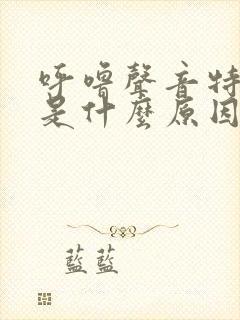 呼嚕聲音特
是什麼原因
藍藍